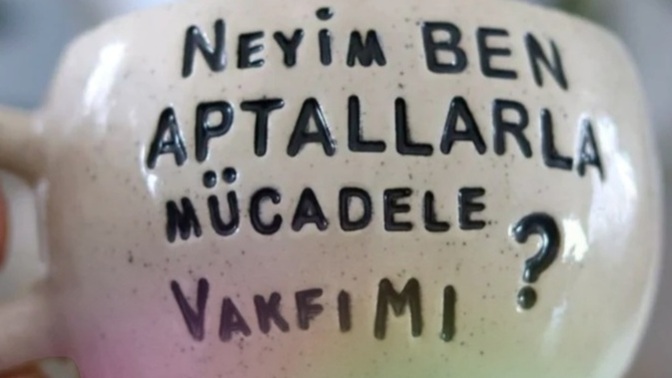 NEYİM BEN
APTALLARLA
MÜCADELE
VAKFIMI ?